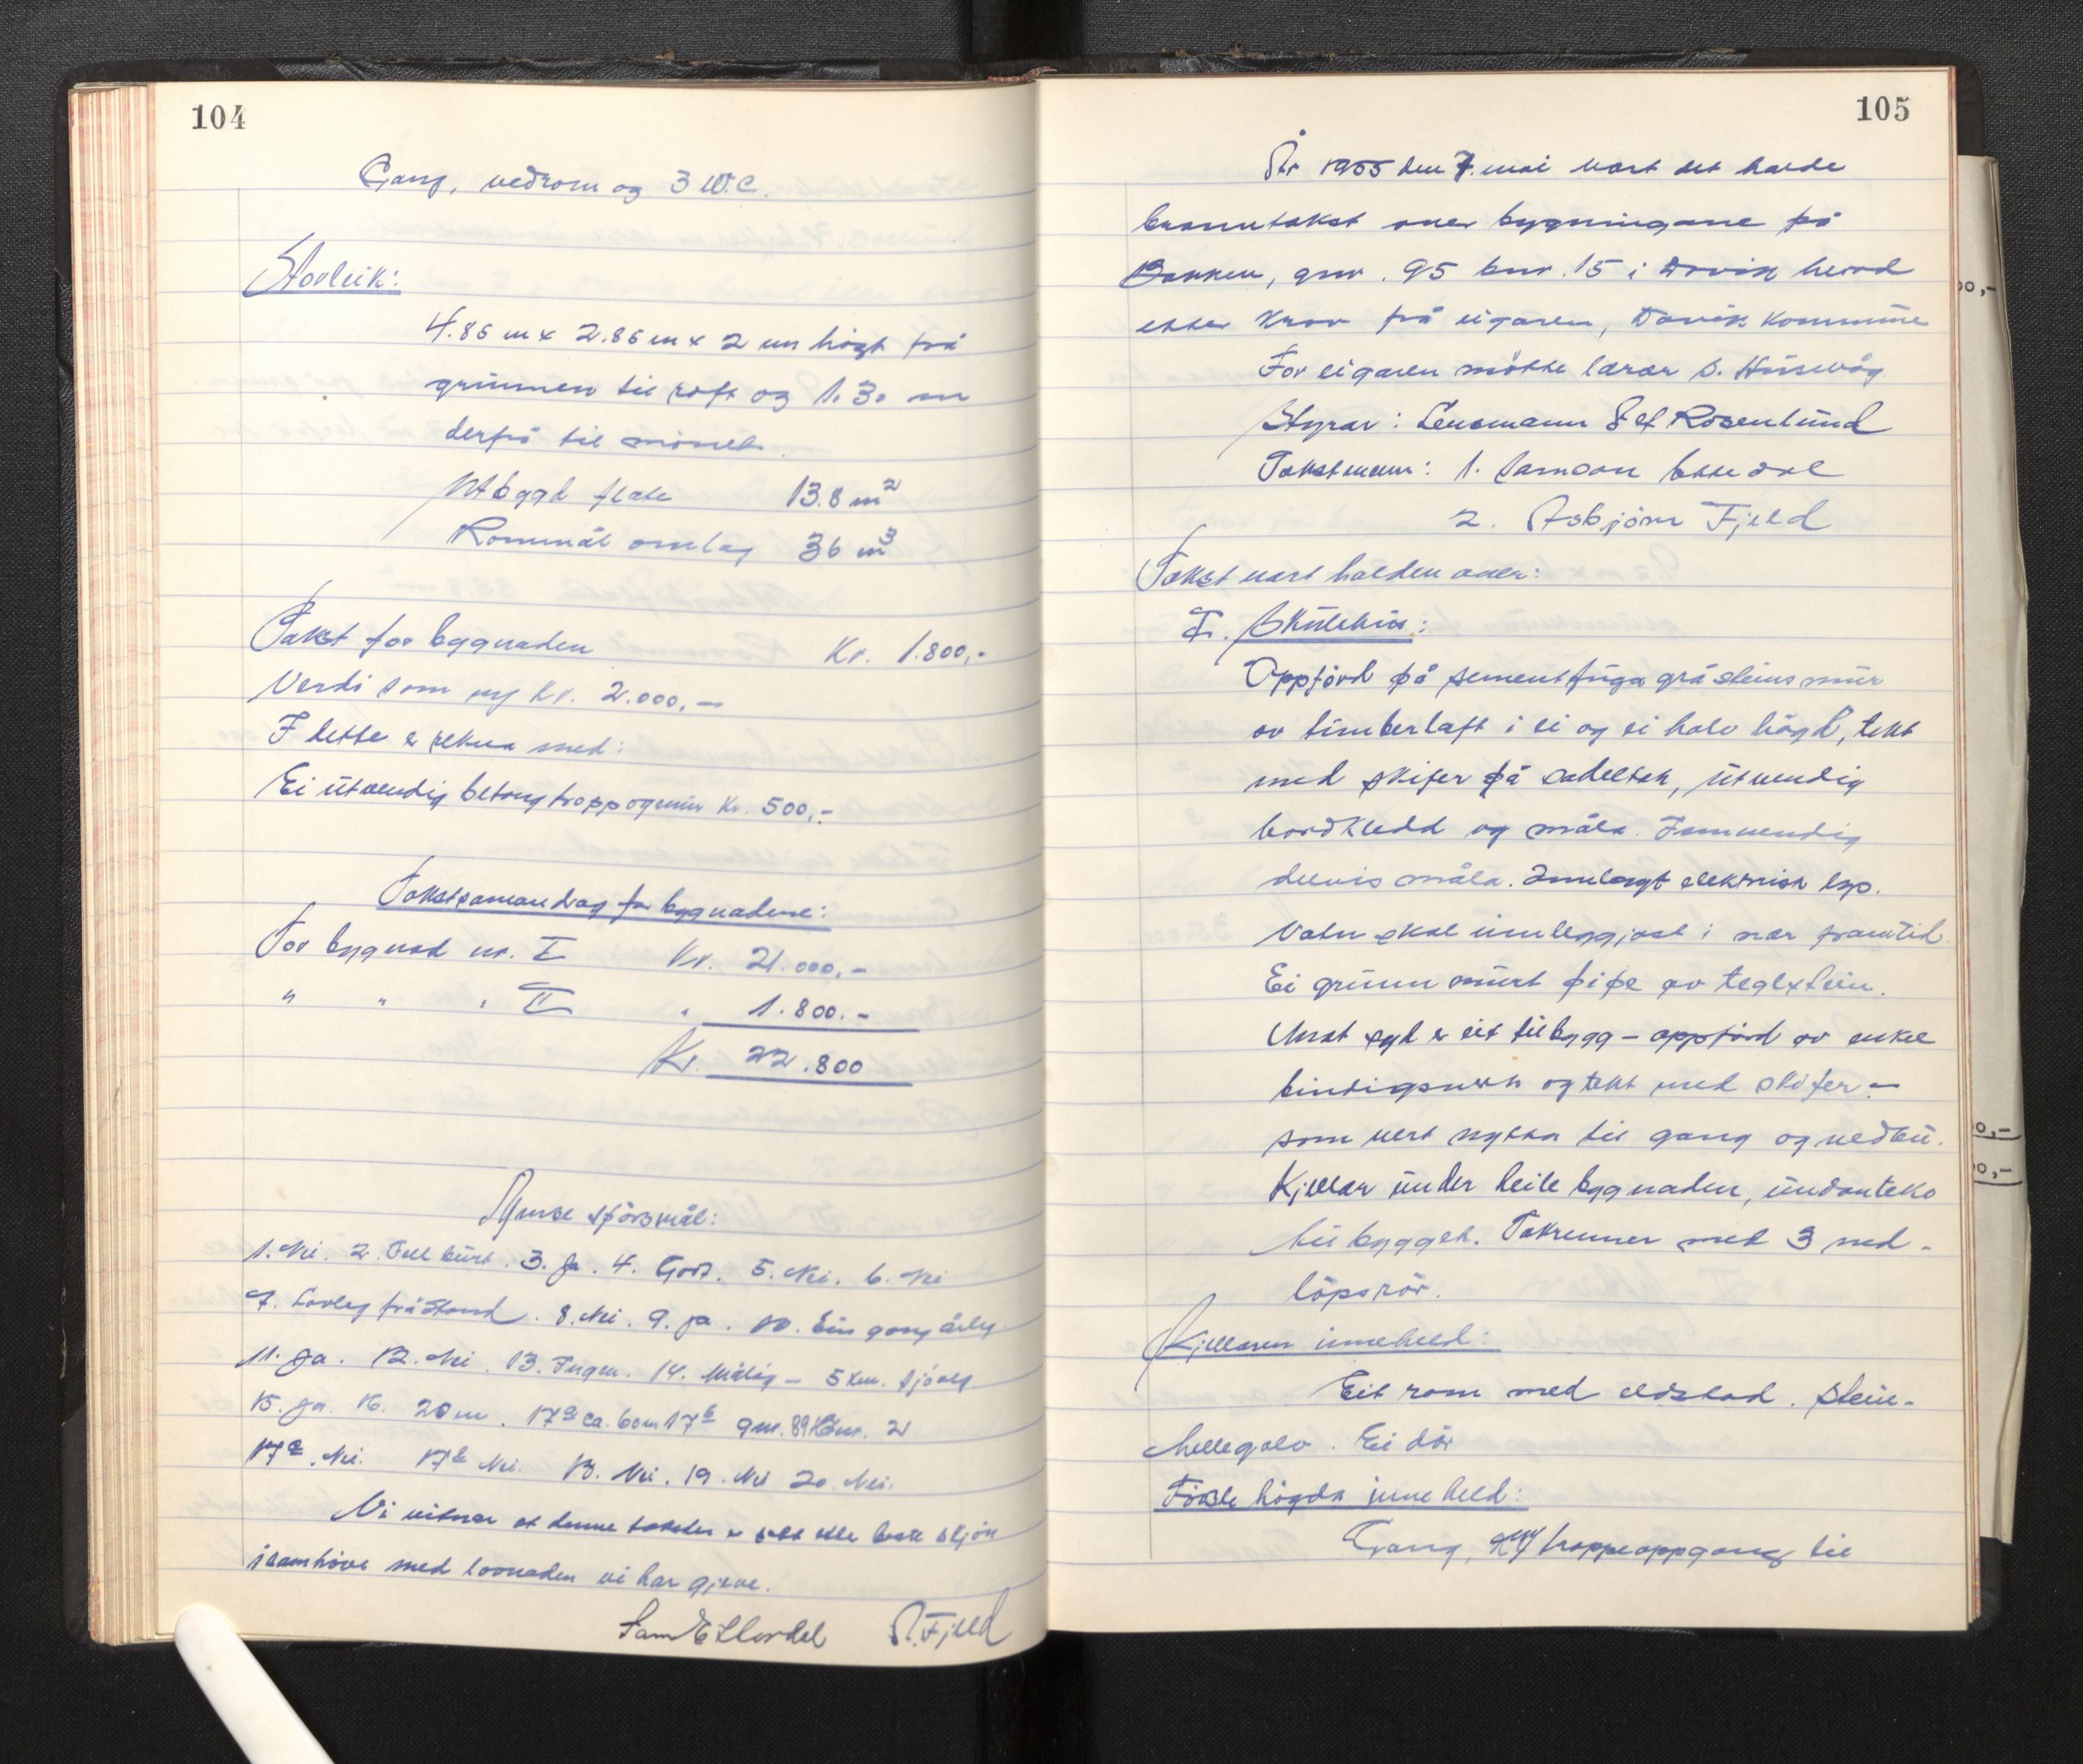 104
Gang, vedrom og 3 W.C.
Storleik:
4.86 m x 2.86 m x 2 m högt frå
grunnen til röft og 1.30 m
derfrå til mönet.
Utbygd flate 13.8 m²
Rommål omlag 36 m³
Takst for bygnaden Kr. 1.800,-
Verdi som ny Kr. 2.000,-
I dette er rekna med:
Ei utvendig betongtrapp og mur Kr. 500,-
Takstsamandrag for bygnadene:
For bygnad nr. I Kr. 21.000,-
" " " II " 1.800.-
Kr. 22.800
Ymse spörsmål:
1. Nei. 2. Fell burt. 3. Ja. 4. God. 5. Nei. 6. Nei
7. Lovleg fråstand. 8. Nei. 9. Ja. 10. Ein gong årleg
11. Ja. 12. Nei. 13. Ingen. 14. Måløy - 5 km. sjöveg
15. Ja. 16. 20 m. 17a ca. 60 m 17b gnr. 89 bnr. 2
17c. Nei. 17d Nei. 18. Nei. 19. Nei 20. Nei.
Vi vitnar at denne taksten er sett etter beste skjön
i samhöve med lovnaden vi har gjeve.
Sam Ettesdal A. Fjeld
105
År 1955 den 7. mai vart det halde
branntakst over bygningane på
Bakken, gnr. 95 bnr. 15 i Davik herad
etter krav frå eigaren, Davik kommune
For eigaren møtte lærar S. Husevåg
Styrar: Lensmann Rosenlund
Takstmenn: 1. Samson Ettesdal
2. Asbjörn Fjeld
Takst vart halden over:
I. Skulehus:
Oppförd på sementfuga gråsteinsmur
av timberlaft i ei og ei halv högd, tekt
med skifer på sadeltak, utvendig
bordkledd og måla. Innvendig
delvis måla. Innlagt elektrisk lys.
Vatn skal innleggjast i nær framtid.
Ei grunnmurt pipe av teglstein.
Mot syd er eit tilbygg - oppförd av enkel
bindigsverk og tekt med skifer -
som vert nytta til gang og vedbu.
Kjellar under heile bygnaden, undanteke
tilbygget. Takrenner med 3 ned-
löpsrör.
Kjellaren inneheld:
Eit rom med eldstad. Stein-
hellegolv. Ei dör
Förste högda inneheld:
Gang, trappeoppgang til